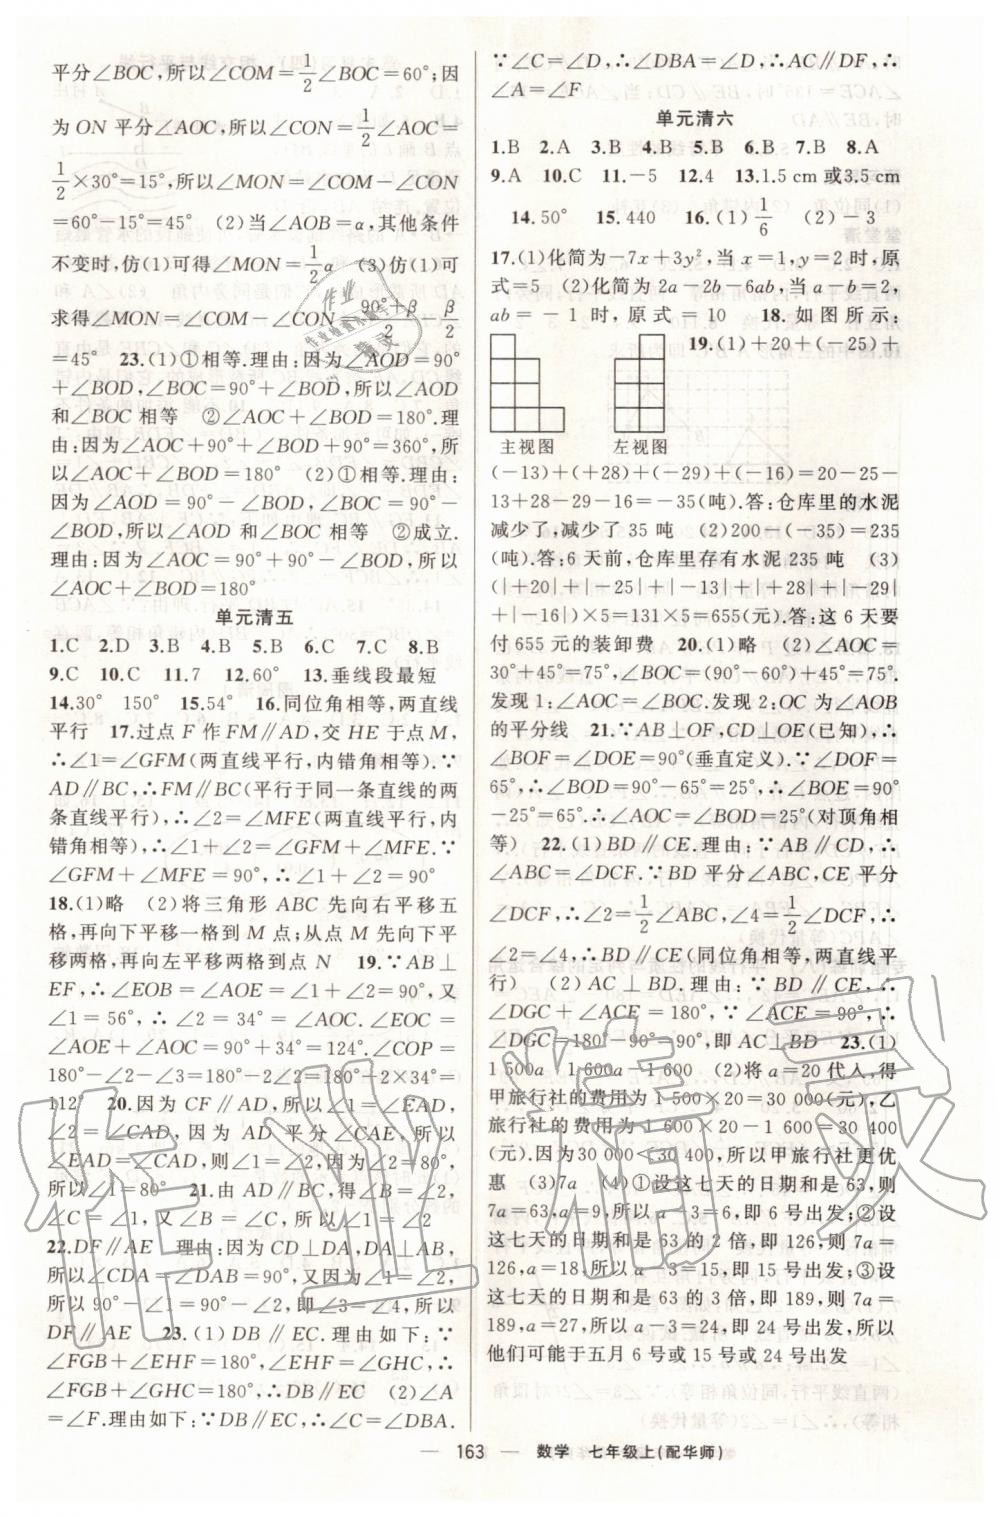 平分∠BOC,所以∠COM=1/2∠BOC=60°;因
为 ON 平分∠AOC,所以∠CON=1/2∠AOC=
1/2×30°=15°,所以∠MON=∠COM-∠CON
=60°-15°=45° (2)当∠AOB=α,其他条件
不变时,仿(1)可得∠MON=1/2α (3)仿(1)可
求得∠MON=∠COM-∠CON=(90°+β)/2-β/2
=45° 23.(1)①相等.理由:因为∠AOD=90°
+∠BOD,∠BOC=90°+∠BOD,所以∠AOD
和∠BOC 相等 ②∠AOC+∠BOD=180°.理
由:因为∠AOC+90°+∠BOD+90°=360°,所
以∠AOC+∠BOD=180° (2)①相等.理由:
因为∠AOD=90°-∠BOD,∠BOC=90°-
∠BOD,所以∠AOD 和∠BOC 相等 ②成立.
理由:因为∠AOC=90°+90°-∠BOD,所以
∠AOC+∠BOD=180°
单元清五
1.C 2.D 3.B 4.B 5.B 6.C 7.C 8.B
9.C 10.C 11.7 12.60° 13.垂线段最短
14.30° 150° 15.54° 16.同位角相等,两直线
平行 17.过点 F 作 FM∥AD,交 HE 于点 M,
∴∠1=∠GFM(两直线平行,内错角相等).∵
AD∥BC,∴FM∥BC(平行于同一条直线的两
条直线平行),∴∠2=∠MFE(两直线平行,内
错角相等),∴∠1+∠2=∠GFM+∠MFE.∵
∠GFM+∠MFE=90°,∴∠1+∠2=90°
18.(1)略 (2)将三角形 ABC 先向右平移五
格,再向下平移一格到 M 点;从点 M 先向下平
移两格,再向左平移两格到点 N 19.∵AB⊥
EF,∴∠EOB=∠AOE=∠1+∠2=90°,又∵
∠1=56°,∴∠2=34°=∠AOC.∠EOC=
∠AOE+∠AOC=90°+34°=124°.∠COP=
180°-∠2-∠3=180°-2∠2=180°-2×34°=
112° 20.因为 CF∥AD,所以∠1=∠EAD,
∠2=∠CAD,因为 AD 平分∠CAE,所以
∠EAD=∠CAD,则∠1=∠2,因为∠2=80°,
所以∠1=80° 21.由 AD∥BC,得∠B=∠2,
∠C=∠1,又∠B=∠C,所以∠1=∠2
22.DF∥AE 理由:因为 CD⊥DA,DA⊥AB,
所以∠CDA=∠DAB=90°,又因为∠1=∠2,
所以 90°-∠1=90°-∠2,即∠3=∠4,所以
DF∥AE 23.(1)DB∥EC.理由如下:∵
∠FGB+∠EHF=180°,∠EHF=∠GHC,∴
∠FGB+∠GHC=180°,∴DB∥EC (2)∠A
=∠F.理由如下:∵DB∥EC,∴∠C=∠DBA.
∵∠C=∠D,∴∠DBA=∠D,∴AC∥DF,∴
∠A=∠F
单元清六
1.B 2.A 3.B 4.B 5.B 6.B 7.B 8.A
9.A 10.C 11.-5 12.4 13.1.5 cm 或3.5 cm
14.50° 15.440 16.(1)1/6 (2)-3
17.(1)化简为-7x+3y²,当 x=1,y=2 时,原
式=5 (2)化简为 2a-2b-6ab,当 a-b=2,
ab=-1 时,原式=10 18.如图所示:
19.(1)+20+(-25)+
主视图 左视图
(-13)+(+28)+(-29)+(-16)=20-25-
13+28-29-16=-35(吨).答:仓库里的水泥
减少了,减少了 35 吨 (2)200-(-35)=235
(吨).答:6 天前,仓库里存有水泥 235 吨 (3)
(|+20|+|-25|+|-13|+|+28|+|-29|
+|-16|)×5=131×5=655(元).答:这 6 天要
付 655 元的装卸费 20.(1)略 (2)∠AOC=
30°+45°=75°,∠BOC=30°+45°=75°.
发现 1:∠AOC=∠BOC.发现 2:OC 为∠AOB
的平分线 21.∵AB⊥OF,CD⊥OE(已知),∴
∠BOF=∠DOE=90°(垂直定义).∵∠DOF=
65°,∴∠BOD=90°-65°=25°,∴∠BOE=90°
-25°=65°.∴∠AOC=∠BOD=25°(对顶角相
等) 22.(1)BD∥CE.理由:∵AB∥CD,∴
∠ABC=∠DCF.∵BD 平分∠ABC,CE 平分
∠DCF,∴∠2=1/2∠ABC,∠4=1/2∠DCF,∴
∠2=∠4,∴BD∥CE(同位角相等,两直线平
行) (2)AC⊥BD.理由:∵BD∥CE,∴
∠DGC+∠ACE=180°,∵∠ACE=90°,∴
∠DGC=180°-90°=90°,即 AC⊥BD 23.(1)
1 500a 1 600a-1 600 (2)将 a=20 代入,得
甲旅行社的费用为 1 500×20=30 000(元),乙
旅行社的费用为 1 600×20-1 600=30 400
(元).因为30 000<30 400,所以甲旅行社更优
惠 (3)7a (4)①设这七天的日期和是 63,则
7a=63,a=9,所以 a-3=6,即 6 号出发;②设
这七天的日期和是 63 的 2 倍,即 126,则 7a=
126,a=18,所以 a-3=15,即 15 号出发;③设
这七天的日期和是 63 的 3 倍,即 189,则 7a=
189,a=27,所以 a-3=24,即 24 号出发,所以
他们可能于五月 6 号或 15 号或 24 号出发
— 163 — 数学 七年级上(配华师)
作业精灵